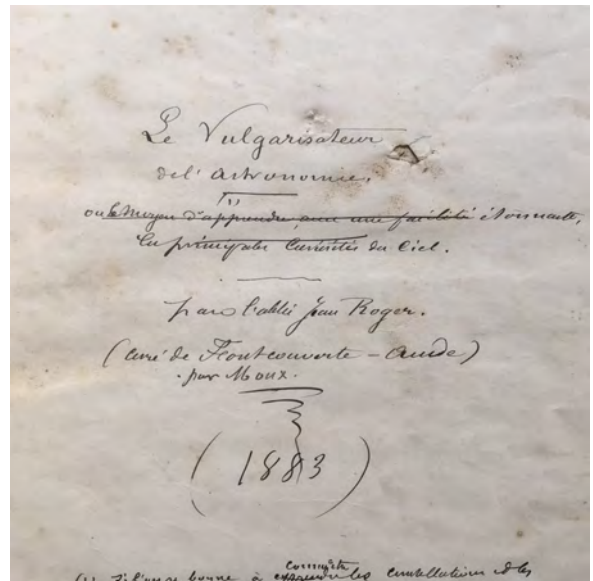 Le Vulgarisateur
de l'astronomie,
(1)
ou le moyen d'apprendre, avec une facilité étonnante,
les principales Curiosités du Ciel.
par l'abbé Jean Roger.
(curé de Fontcouverte - Aude)
par Moux.
(1883)
connaître
(1) à les constellations et les